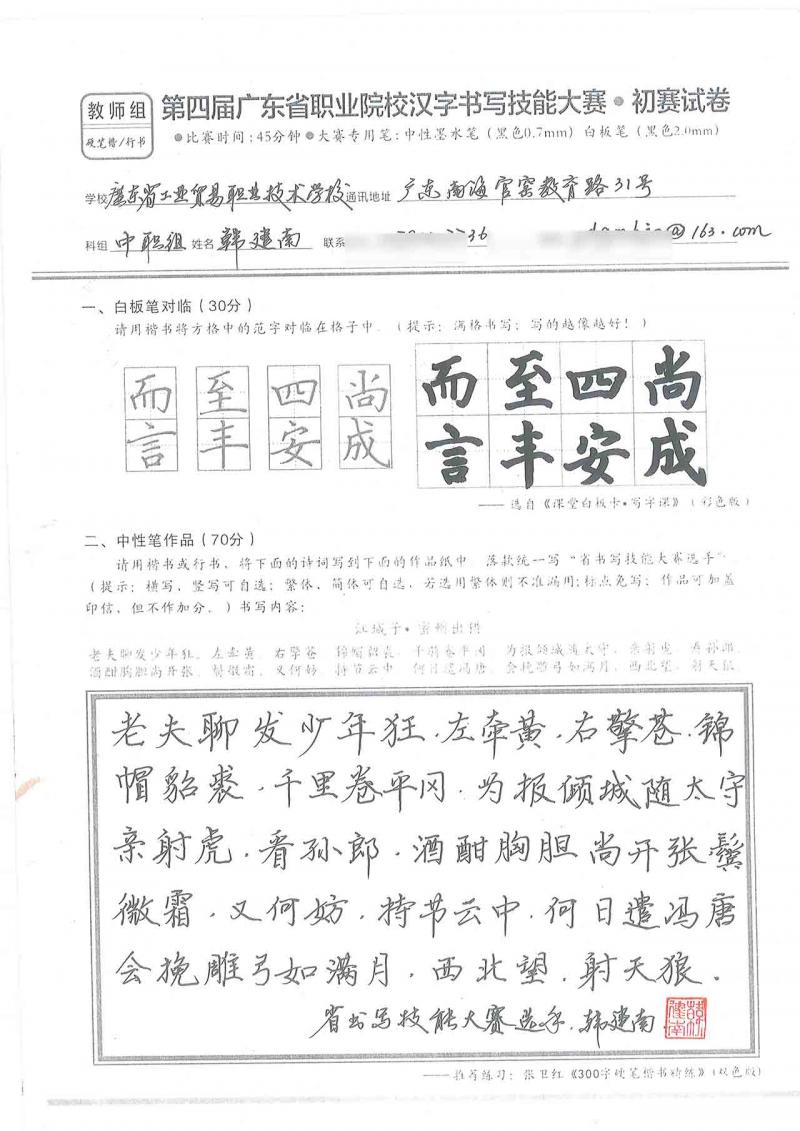 教师组
硬笔楷/行书
第四届广东省职业院校汉字书写技能大赛·初赛试卷
●比赛时间:45分钟●大赛专用笔:中性墨水笔(黑色0.7mm)白板笔(黑色2.0mm)
学校 廣东省工业贸易职业技术学校 通讯地址 广东南海官窑教育路31号
科组 中职组 姓名 韩建南 联系 36 @163.com
一、白板笔对临(30分)
请用楷书将方格中的范字对临在格子中.(提示:满格书写;写的越像越好!)
而至四尚 而至四尚
言丰安成 言丰安成
——选自《课堂白板卡·写字课》(彩色版)
二、中性笔作品(70分)
请用楷书或行书,将下面的诗词写到下面的作品纸中.落款统一写“省书写技能大赛选手”
(提示:横写,竖写可自选;繁体,简体可自选,若选用繁体则不准漏用;标点免写;作品可加盖
印信,但不作加分.)书写内容:
江城子·密州出猎
老夫聊发少年狂,左牵黄,右擎苍,锦帽貂裘,千骑卷平冈.为报倾城随太守,亲射虎,看孙郎.
酒酣胸胆尚开张,鬓微霜,又何妨.持节云中,何日遣冯唐.会挽雕弓如满月,西北望,射天狼.
老夫聊发少年狂.左牵黄.右擎苍.锦
帽貂裘.千里卷平冈.为报倾城随太守
亲射虎.看孙郎.酒酣胸胆尚开张鬓
微霜.又何妨.持节云中.何日遣冯唐
会挽雕弓如满月.西北望.射天狼.
省书写技能大赛选手.韩建南
——推荐练习:张卫红《300字硬笔楷书精练》(双色版)